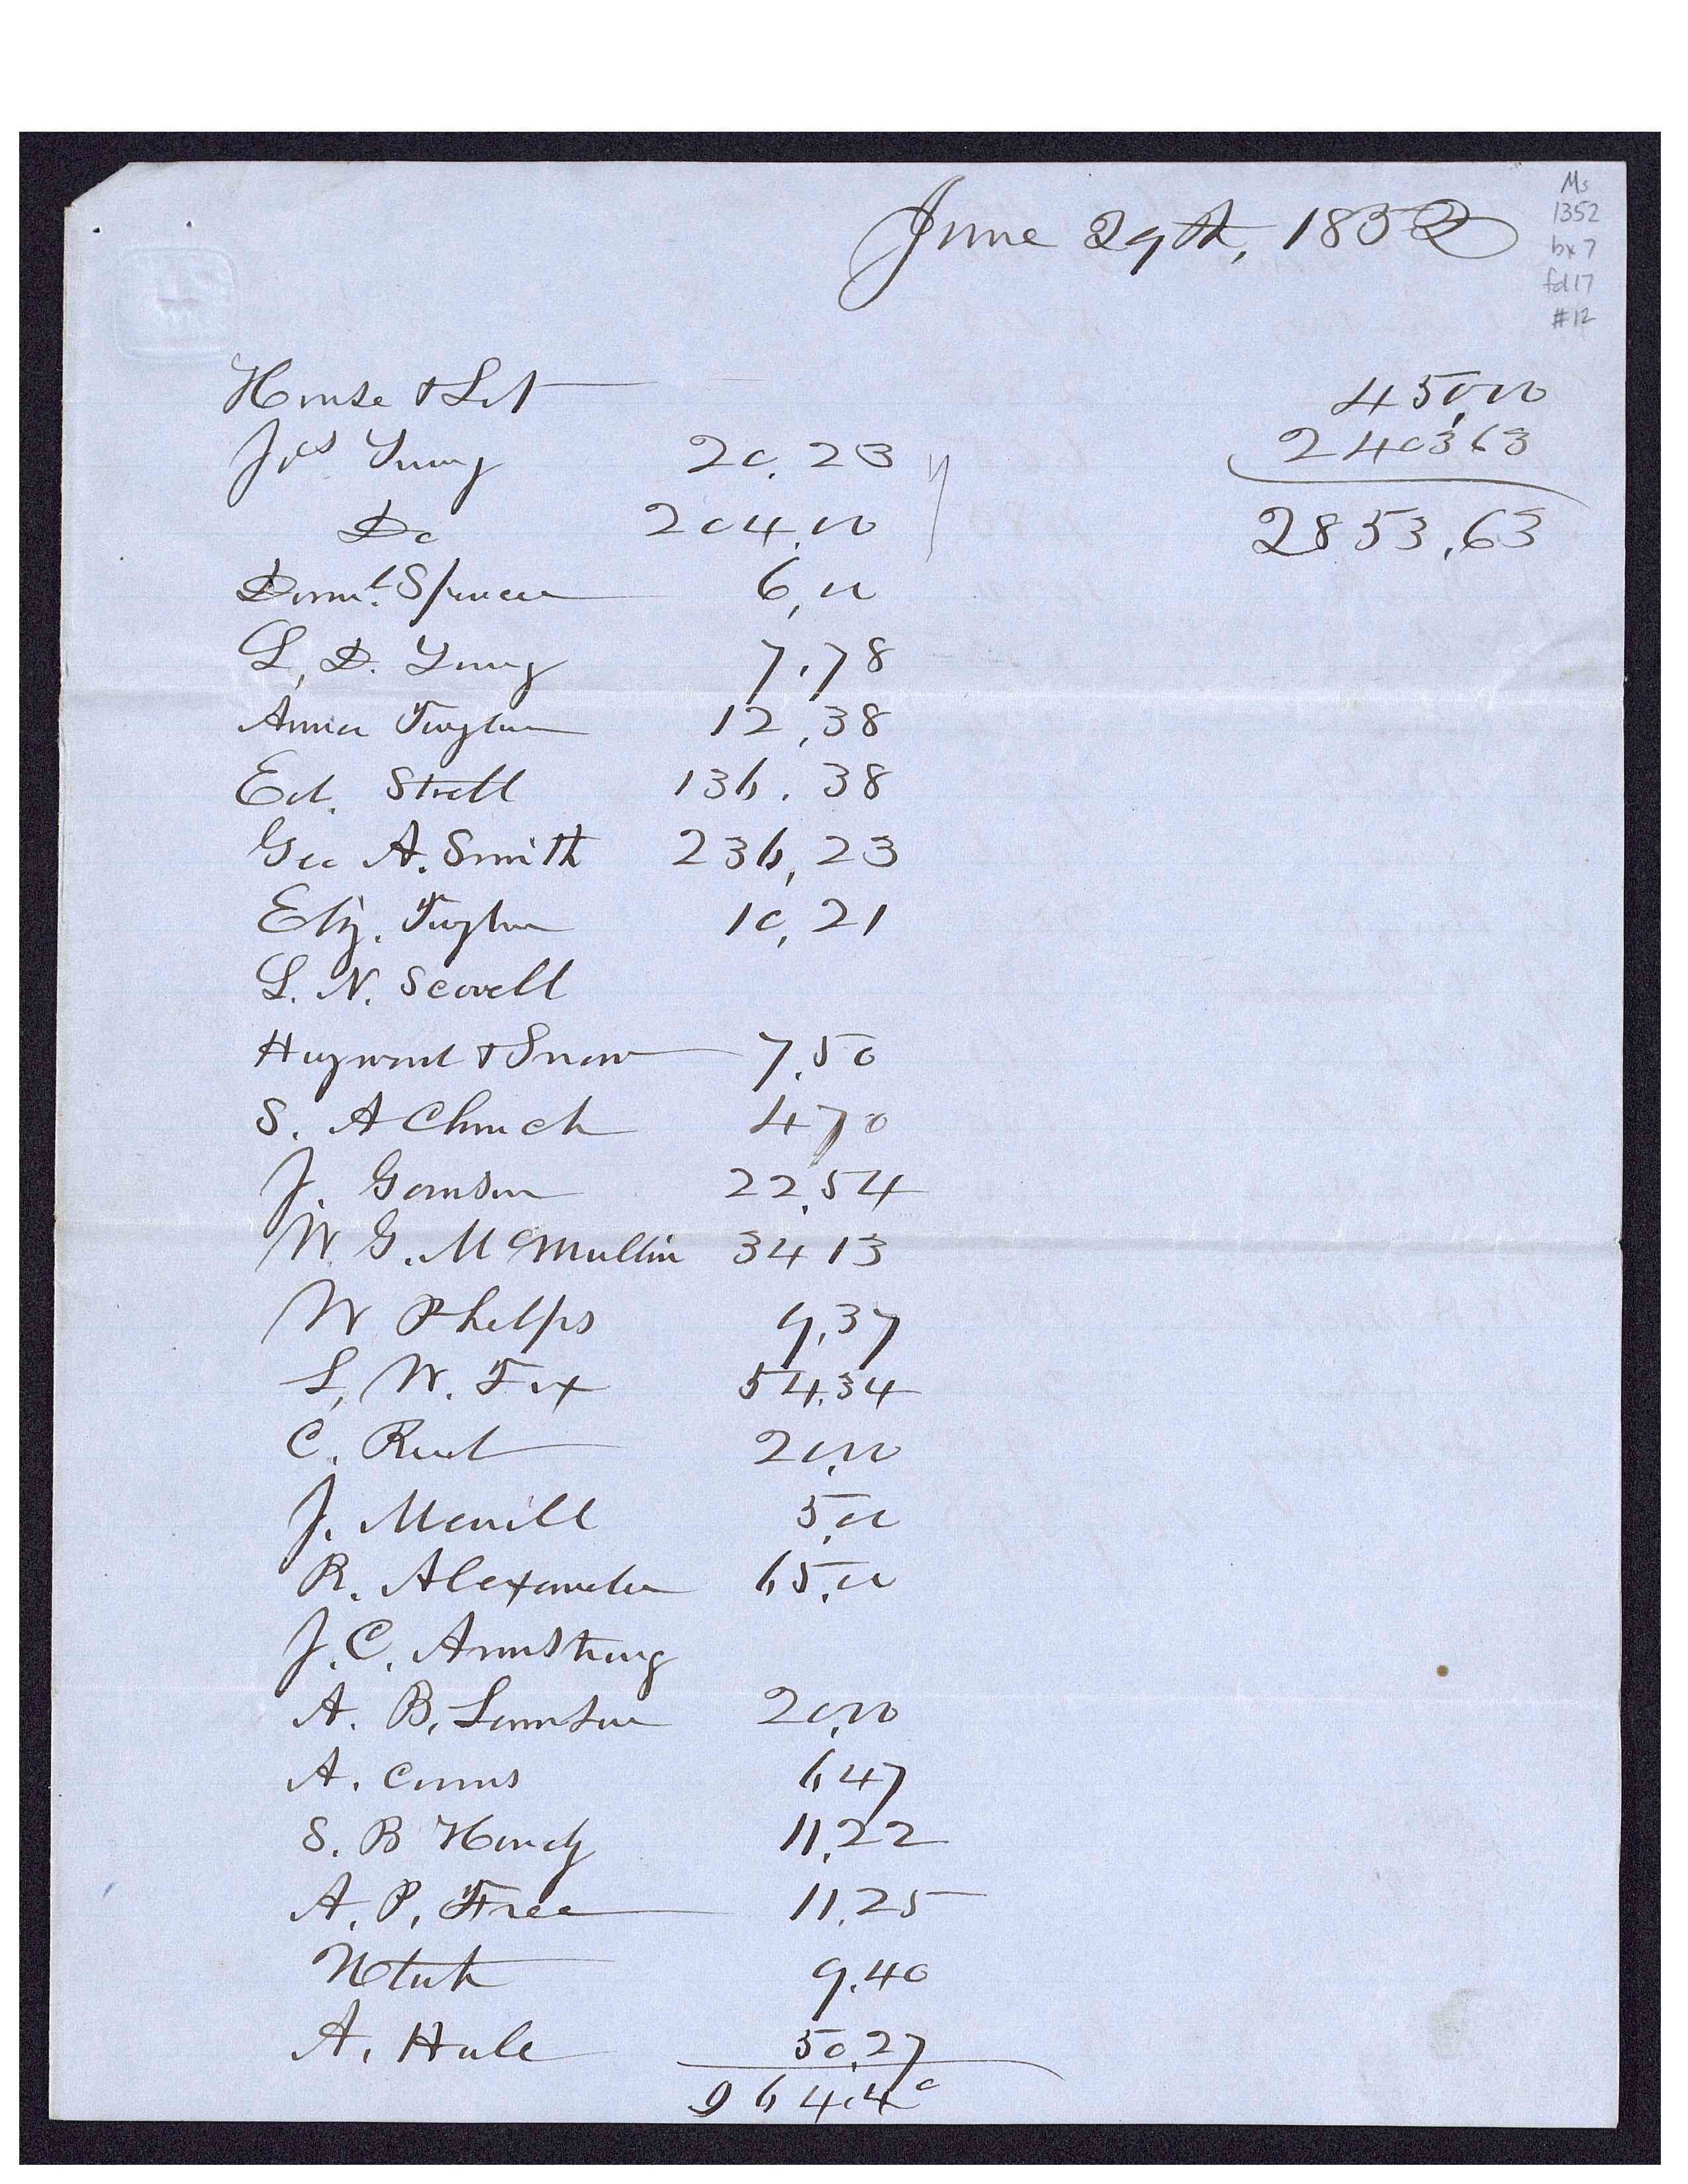 June 29th, 1852
Ms
1352
bx 7
fd 17
#12
House & Lot 450,00
Jos Young 20.23 2403 63
Do 204.00 2853,63
Danl. Spencer 6,00
L, D. Young 7.78
Anna Taylor 12,38
Ed. Strell 136.38
Geo A. Smith 236,23
Eliz. Taylor 10,21
L. N. Scovell
Haywood & Snow 7.50
S. A Church 4 70
J. Gamson 22.54
W. G. McMullin 34 13
W Phelps 9,37
L, W. Fox 54.34
C. Root 20.00
J. Merrill 5,00
R. Alexander 65.00
J. C. Armstrong
A. B, Lamson 20,00
A. Coons 6 47
S. B Handy 11.22
A. P, Free 11.25
9.40
A. Hale 50.27
964.40